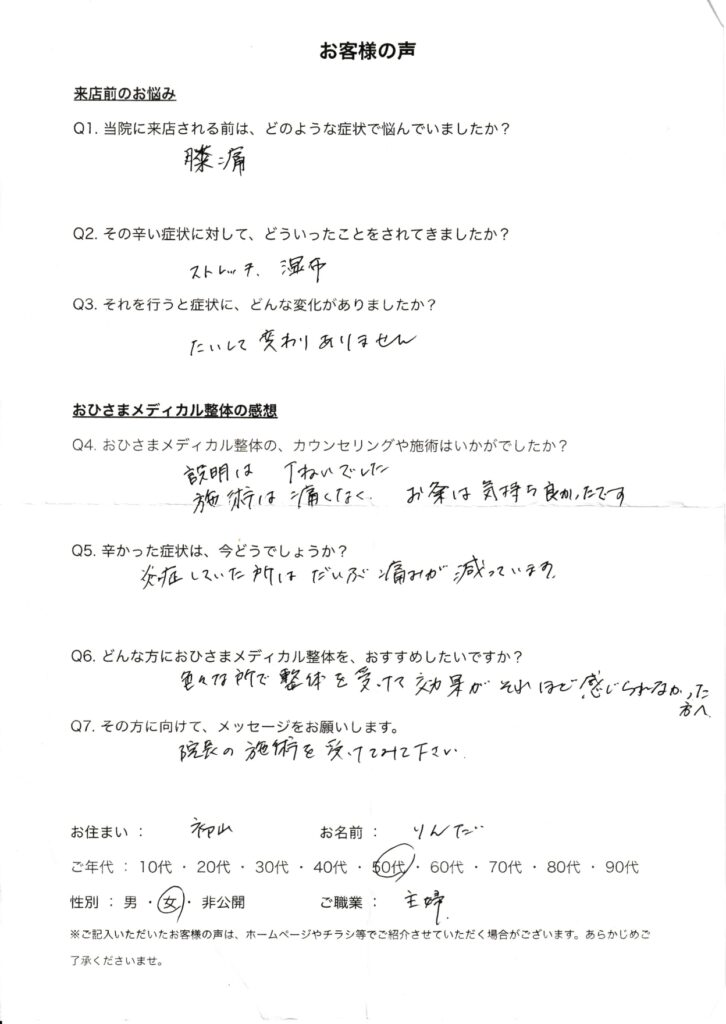 お客様の声
来店前のお悩み
Q1. 当院に来店される前は、どのような症状で悩んでいましたか？
膝痛
Q2. その辛い症状に対して、どういったことをされてきましたか？
ストレッチ、湿布
Q3. それを行うと症状に、どんな変化がありましたか？
たいして変わりありません
おひさまメディカル整体の感想
Q4. おひさまメディカル整体の、カウンセリングや施術はいかがでしたか？
説明は丁ねいでした
施術は痛くなく、お灸は気持ち良かったです
Q5. 辛かった症状は、今どうでしょうか？
炎症していた所はだいぶ痛みが減っています。
Q6. どんな方におひさまメディカル整体を、おすすめしたいですか？
色々な所で整体を受けて効果がそれほど感じられなかった
方へ
Q7. その方に向けて、メッセージをお願いします。
院長の施術を受けてみて下さい。
お住まい： 初山 お名前： りんだ
ご年代：10代・20代・30代・40代・50代・60代・70代・80代・90代
性別：男・女・非公開 ご職業： 主婦
※ご記入いただいたお客様の声は、ホームページやチラシ等でご紹介させていただく場合がございます。あらかじめご
了承くださいませ。